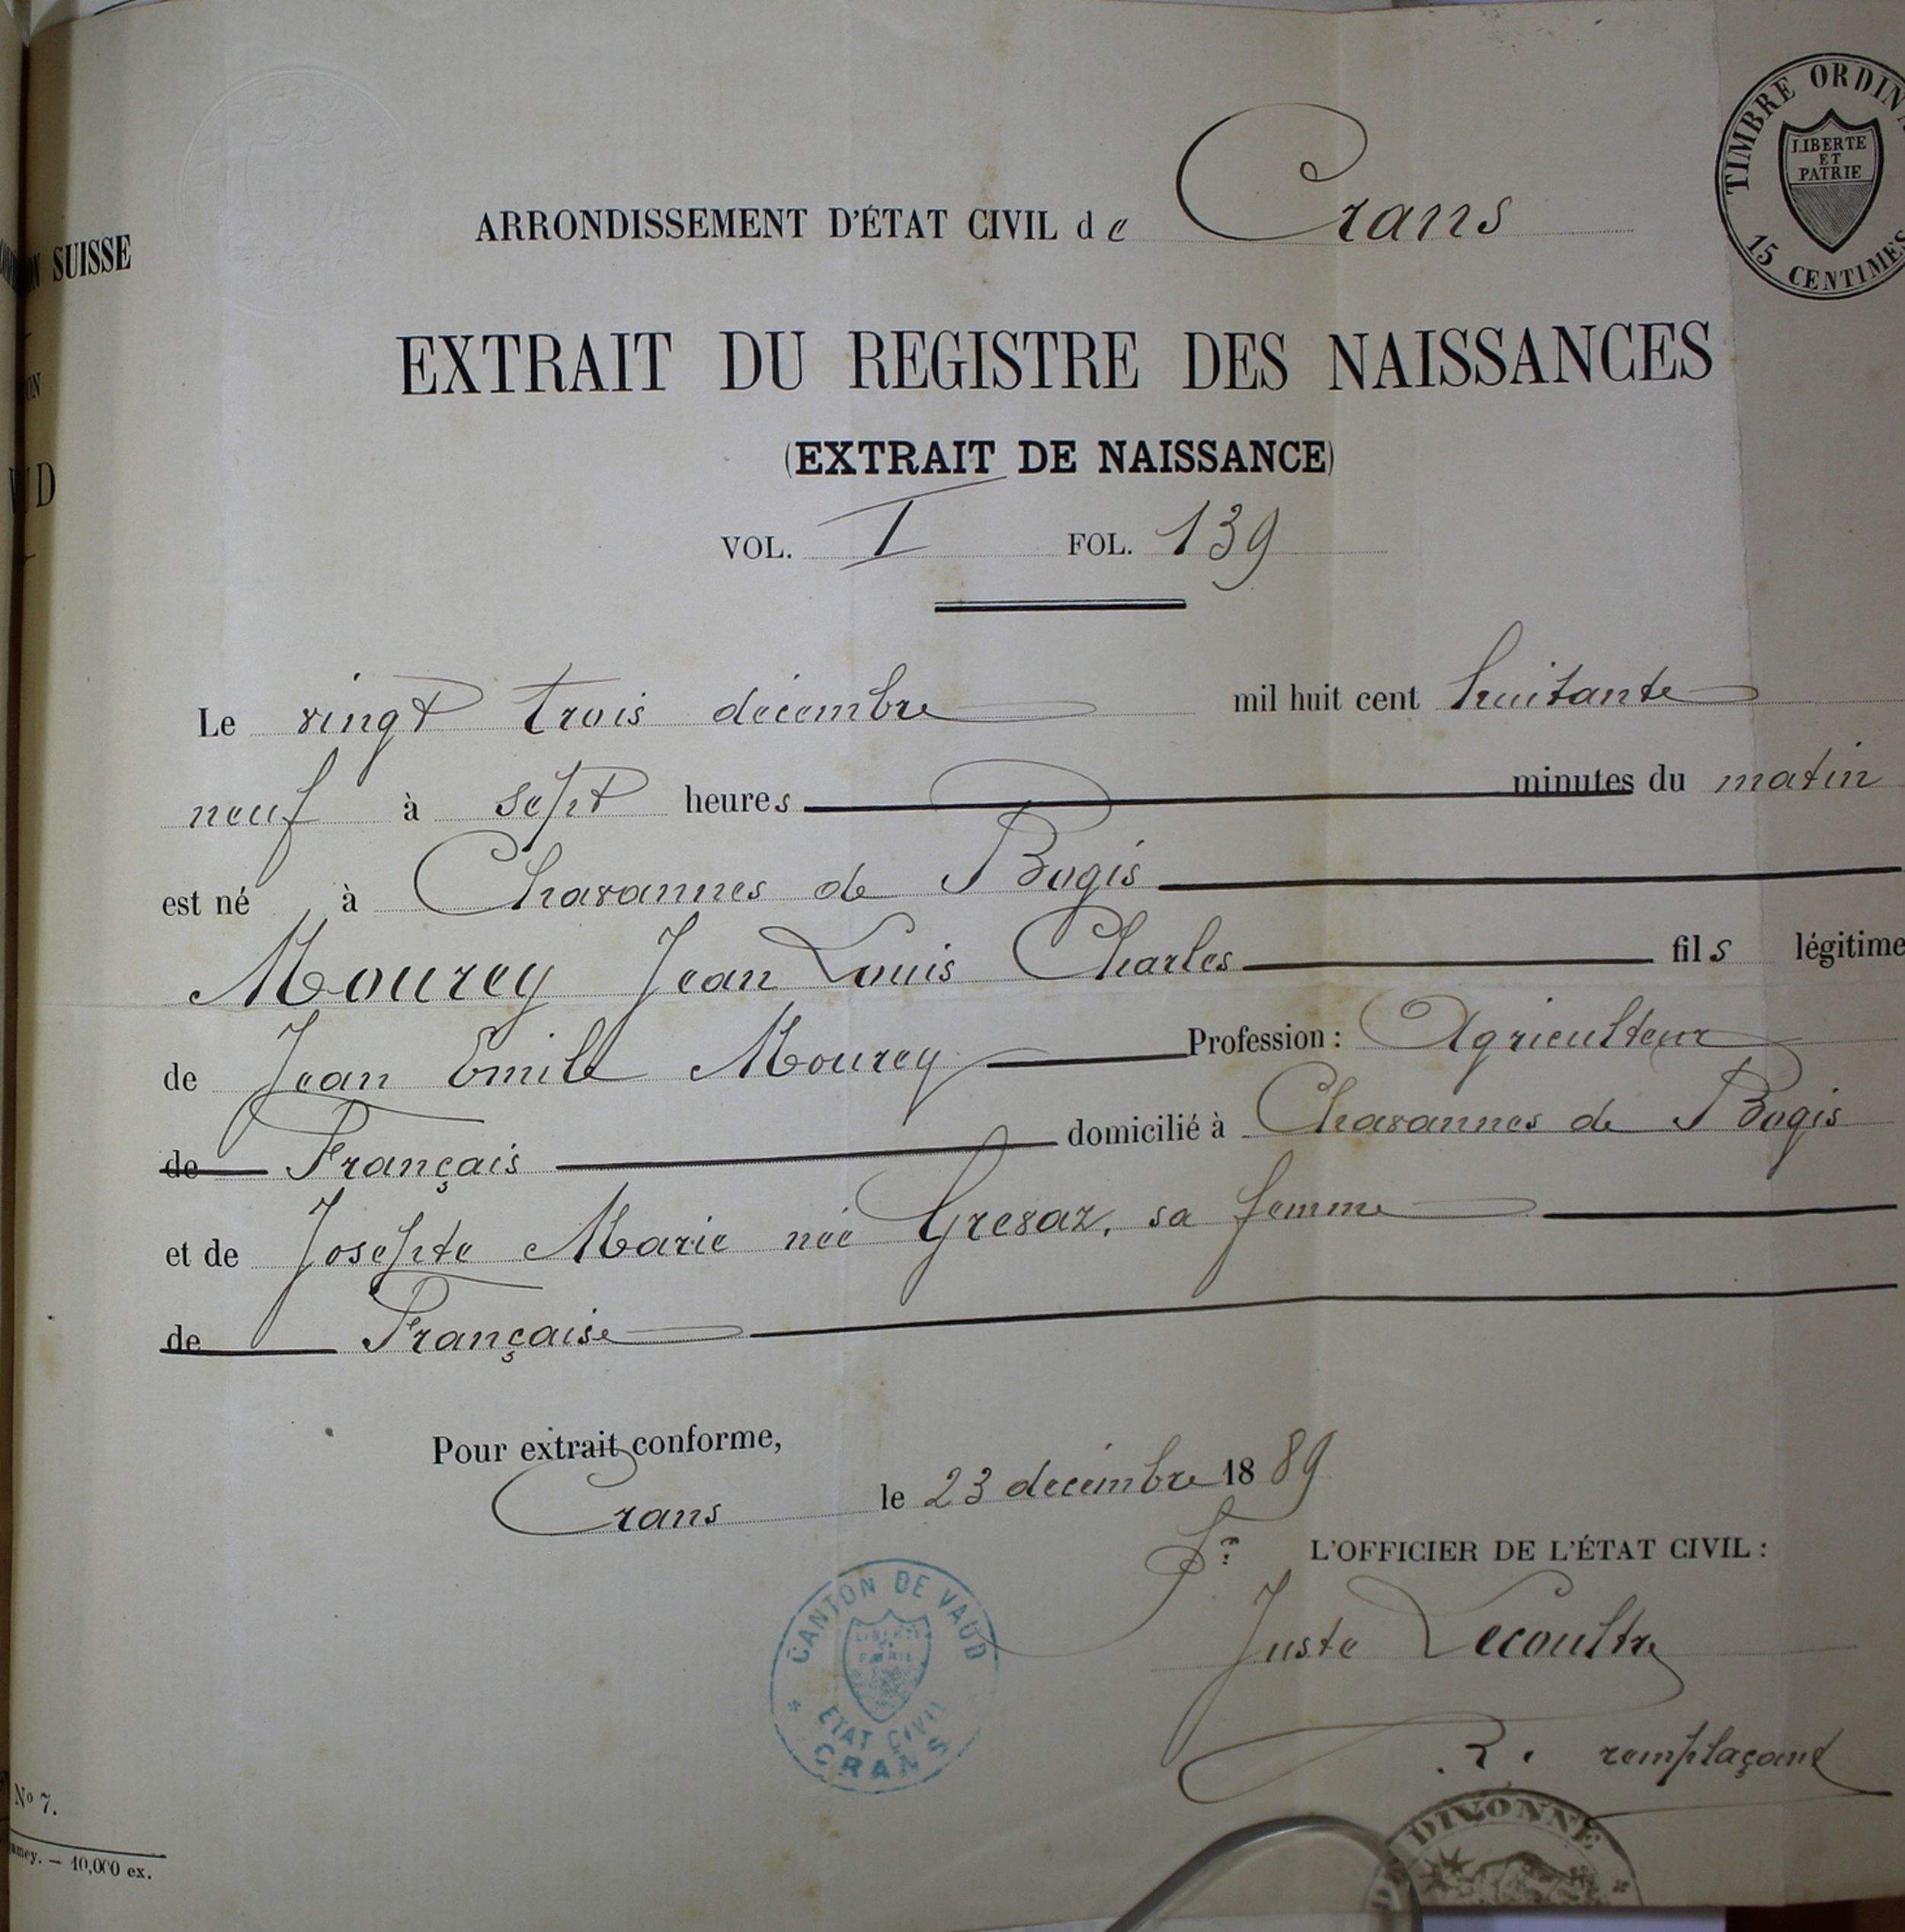 ARRONDISSEMENT D'ÉTAT CIVIL de Crans
TIMBRE ORDIN
LIBERTE
ET
PATRIE
15 CENTIMES
SUISSE
EXTRAIT DU REGISTRE DES NAISSANCES
(EXTRAIT DE NAISSANCE)
VOL. I FOL. 139
Le vingt trois décembre mil huit cent huitante
neuf à sept heures minutes du matin
est né à Chavannes de Bogis
Mourey Jean Louis Charles fils légitime
de Jean Emile Mourey Profession : Agriculteur
de Français domicilié à Chavannes de Bogis
et de Josephte Marie née Grevaz, sa femme
de Française
Pour extrait conforme,
Crans le 23 décembre 1889
Pr L'OFFICIER DE L'ÉTAT CIVIL :
Juste Lecoultre
remplaçant
CANTON DE VAUD
LIBERTE
ET
PATRIE
ETAT CIVIL
CRANS
DIVONNE
No 7.
10,000 ex.